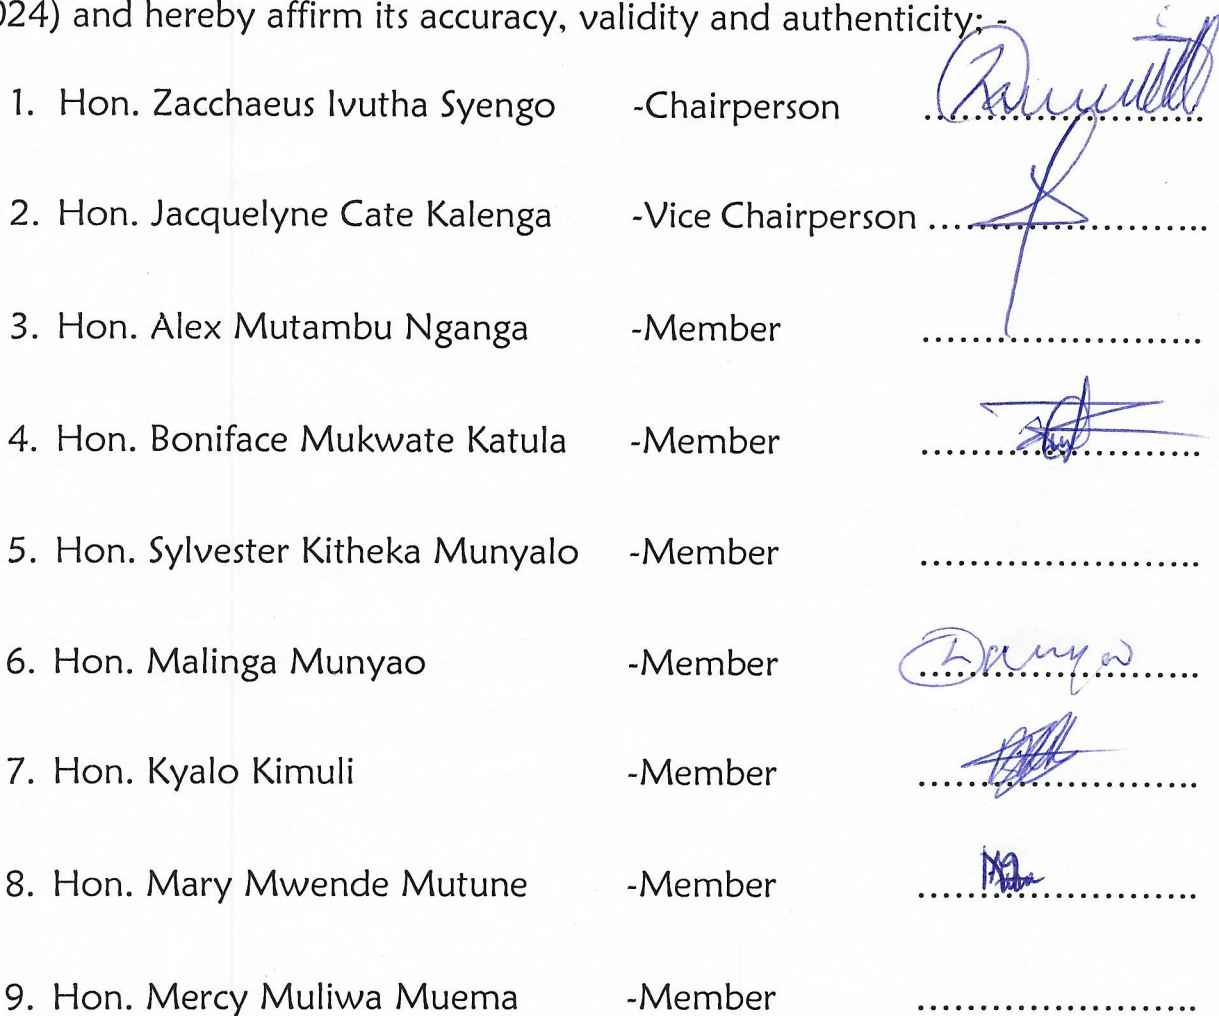 024) and hereby affirm its accuracy, validity and authenticity; -
1. Hon. Zacchaeus Ivutha Syengo -Chairperson ............................
2. Hon. Jacquelyne Cate Kalenga -Vice Chairperson ............................
3. Hon. Alex Mutambu Nganga -Member ............................
4. Hon. Boniface Mukwate Katula -Member ............................
5. Hon. Sylvester Kitheka Munyalo -Member ............................
6. Hon. Malinga Munyao -Member ............................
7. Hon. Kyalo Kimuli -Member ............................
8. Hon. Mary Mwende Mutune -Member ............................
9. Hon. Mercy Muliwa Muema -Member ............................